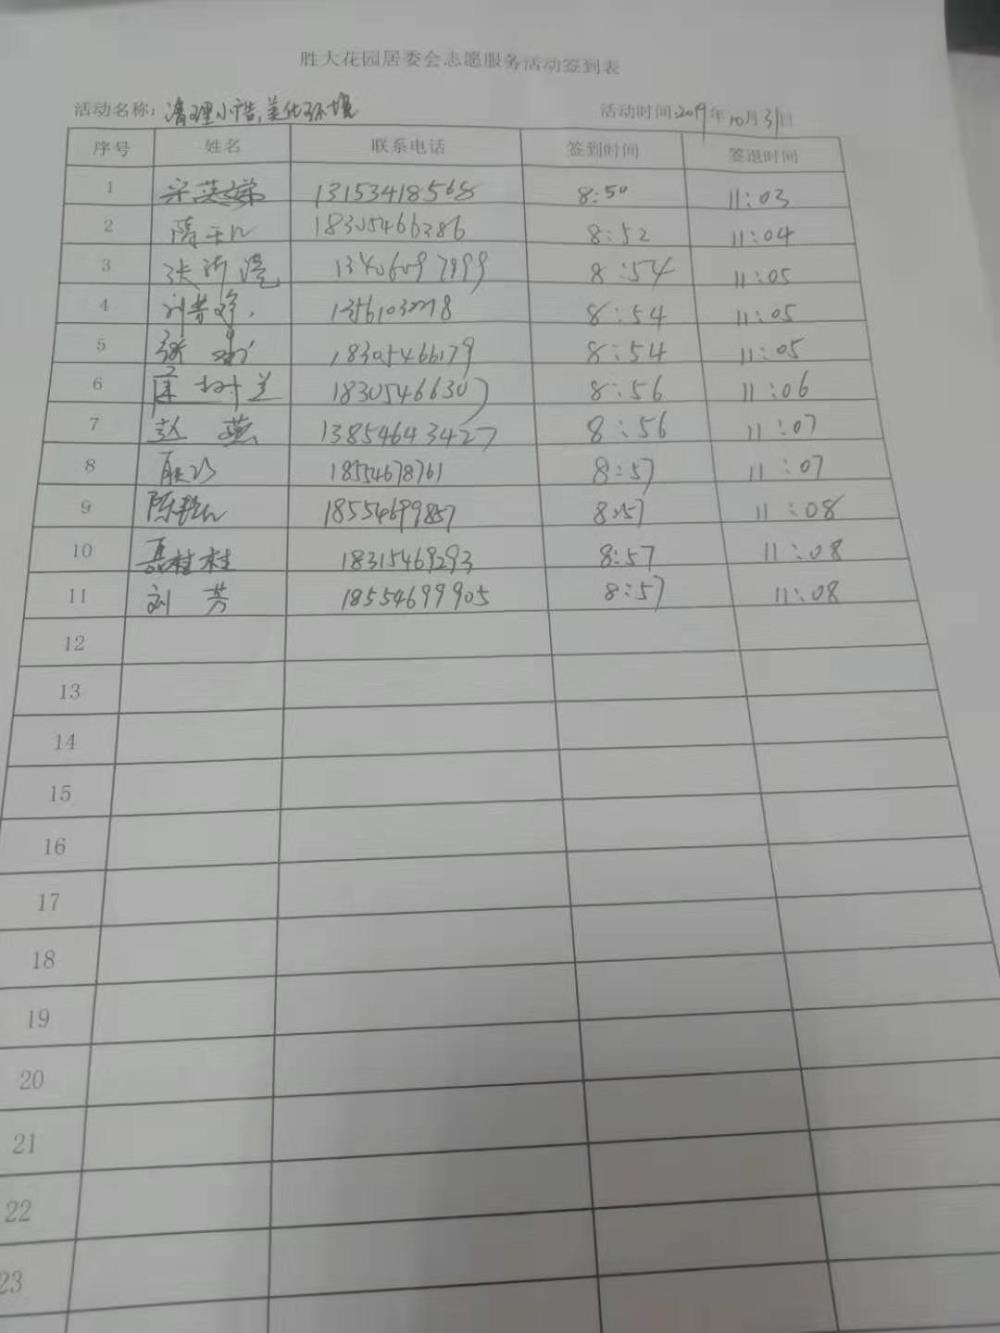 胜大花园居委会志愿服务活动签到表
活动名称：清理小广告,美化环境 活动时间2019年10月31日
序号 姓名 联系电话 签到时间 签退时间
1 宋英娣 13153418568 8:50 11:03
2 隋 18305466286 8:52 11:04
3 张 13406097999 8:54 11:05
4 刘 8:54 11:05
5 张 18305466179 8:54 11:05
6 树兰 18305466307 8:56 11:06
7 赵燕 13854643427 8:56 11:07
8 18554678761 8:57 11:07
9 陈 18554699857 8:57 11:08
10 聂桂桂 18315469293 8:57 11:08
11 刘芳 18554699905 8:57 11:08
12
13
14
15
16
17
18
19
20
21
22
23